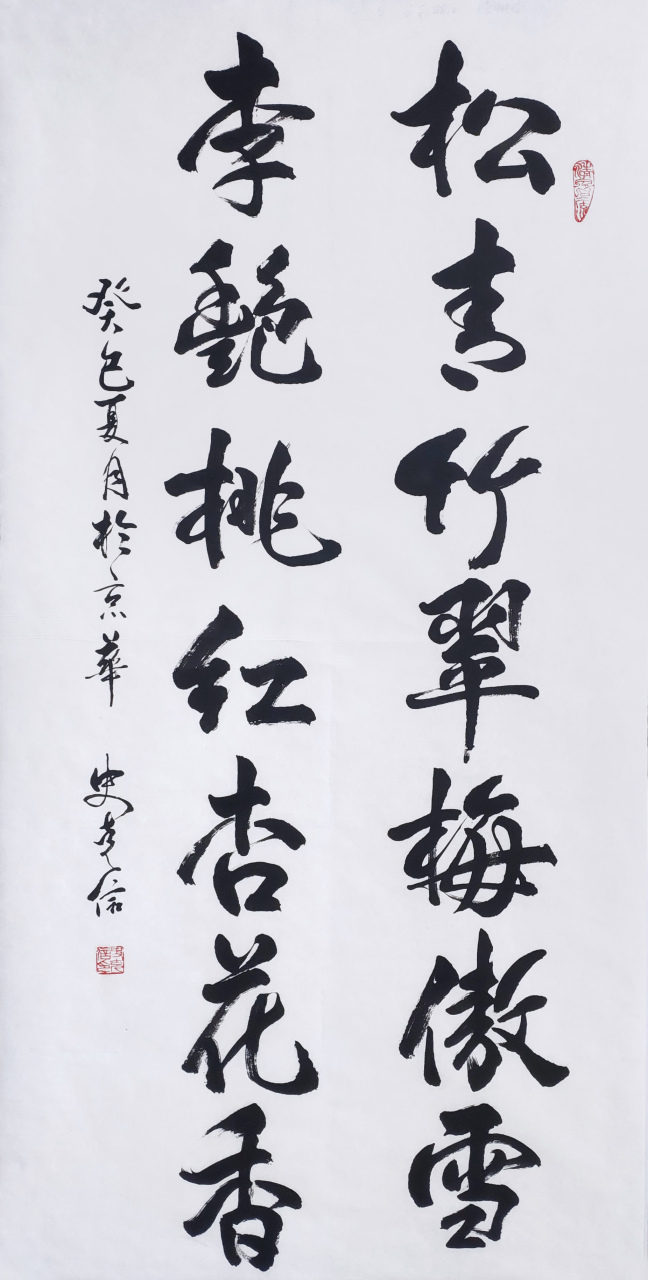 松青竹翠梅傲雪
李艷桃红杏花香
癸巳夏月於京華 史
信